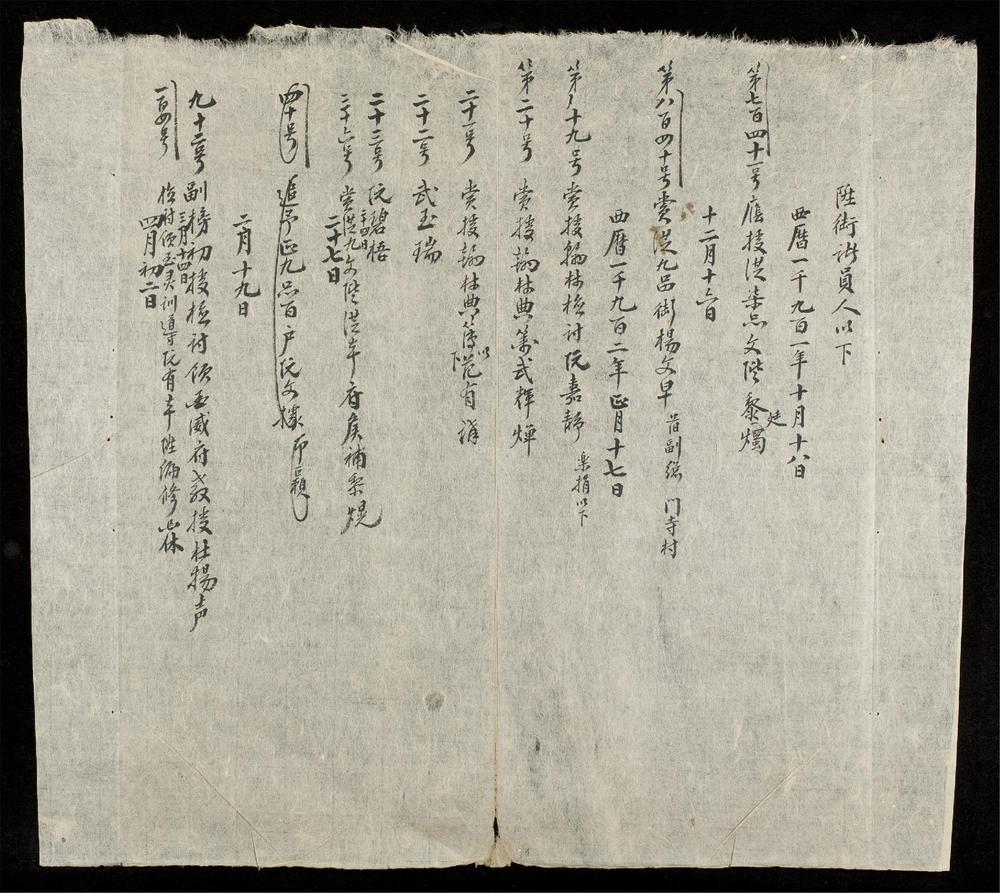 陞銜諸員人以下
西曆一千九百一年十月十八日
第七百四十一号 應授洪柒品文階黎廷燭
十二月十六日
第八百四十号賞洪九品銜楊文早 昔副總 門寺村
西曆一千九百二年正月十七日
第十九号 賞授翰林檢討阮嘉靜 樂捐以下
第二十号 賞授翰林典簿武輝燀
二十一号 賞授翰林典簿范有詳 以下
二十二号 武玉瑞
二十三号 阮碧梧
二十四日
二十六号 賞洪九文階洪安府 補黎熀
二十七日
四十号 追予正九品百户阮文據 即
二月十九日
九十二号 副榜初授檢討領 威府教授杜揚声
三月十四日
一百四号 檢討領 訓導阮有 陞編修 休
四月初二日